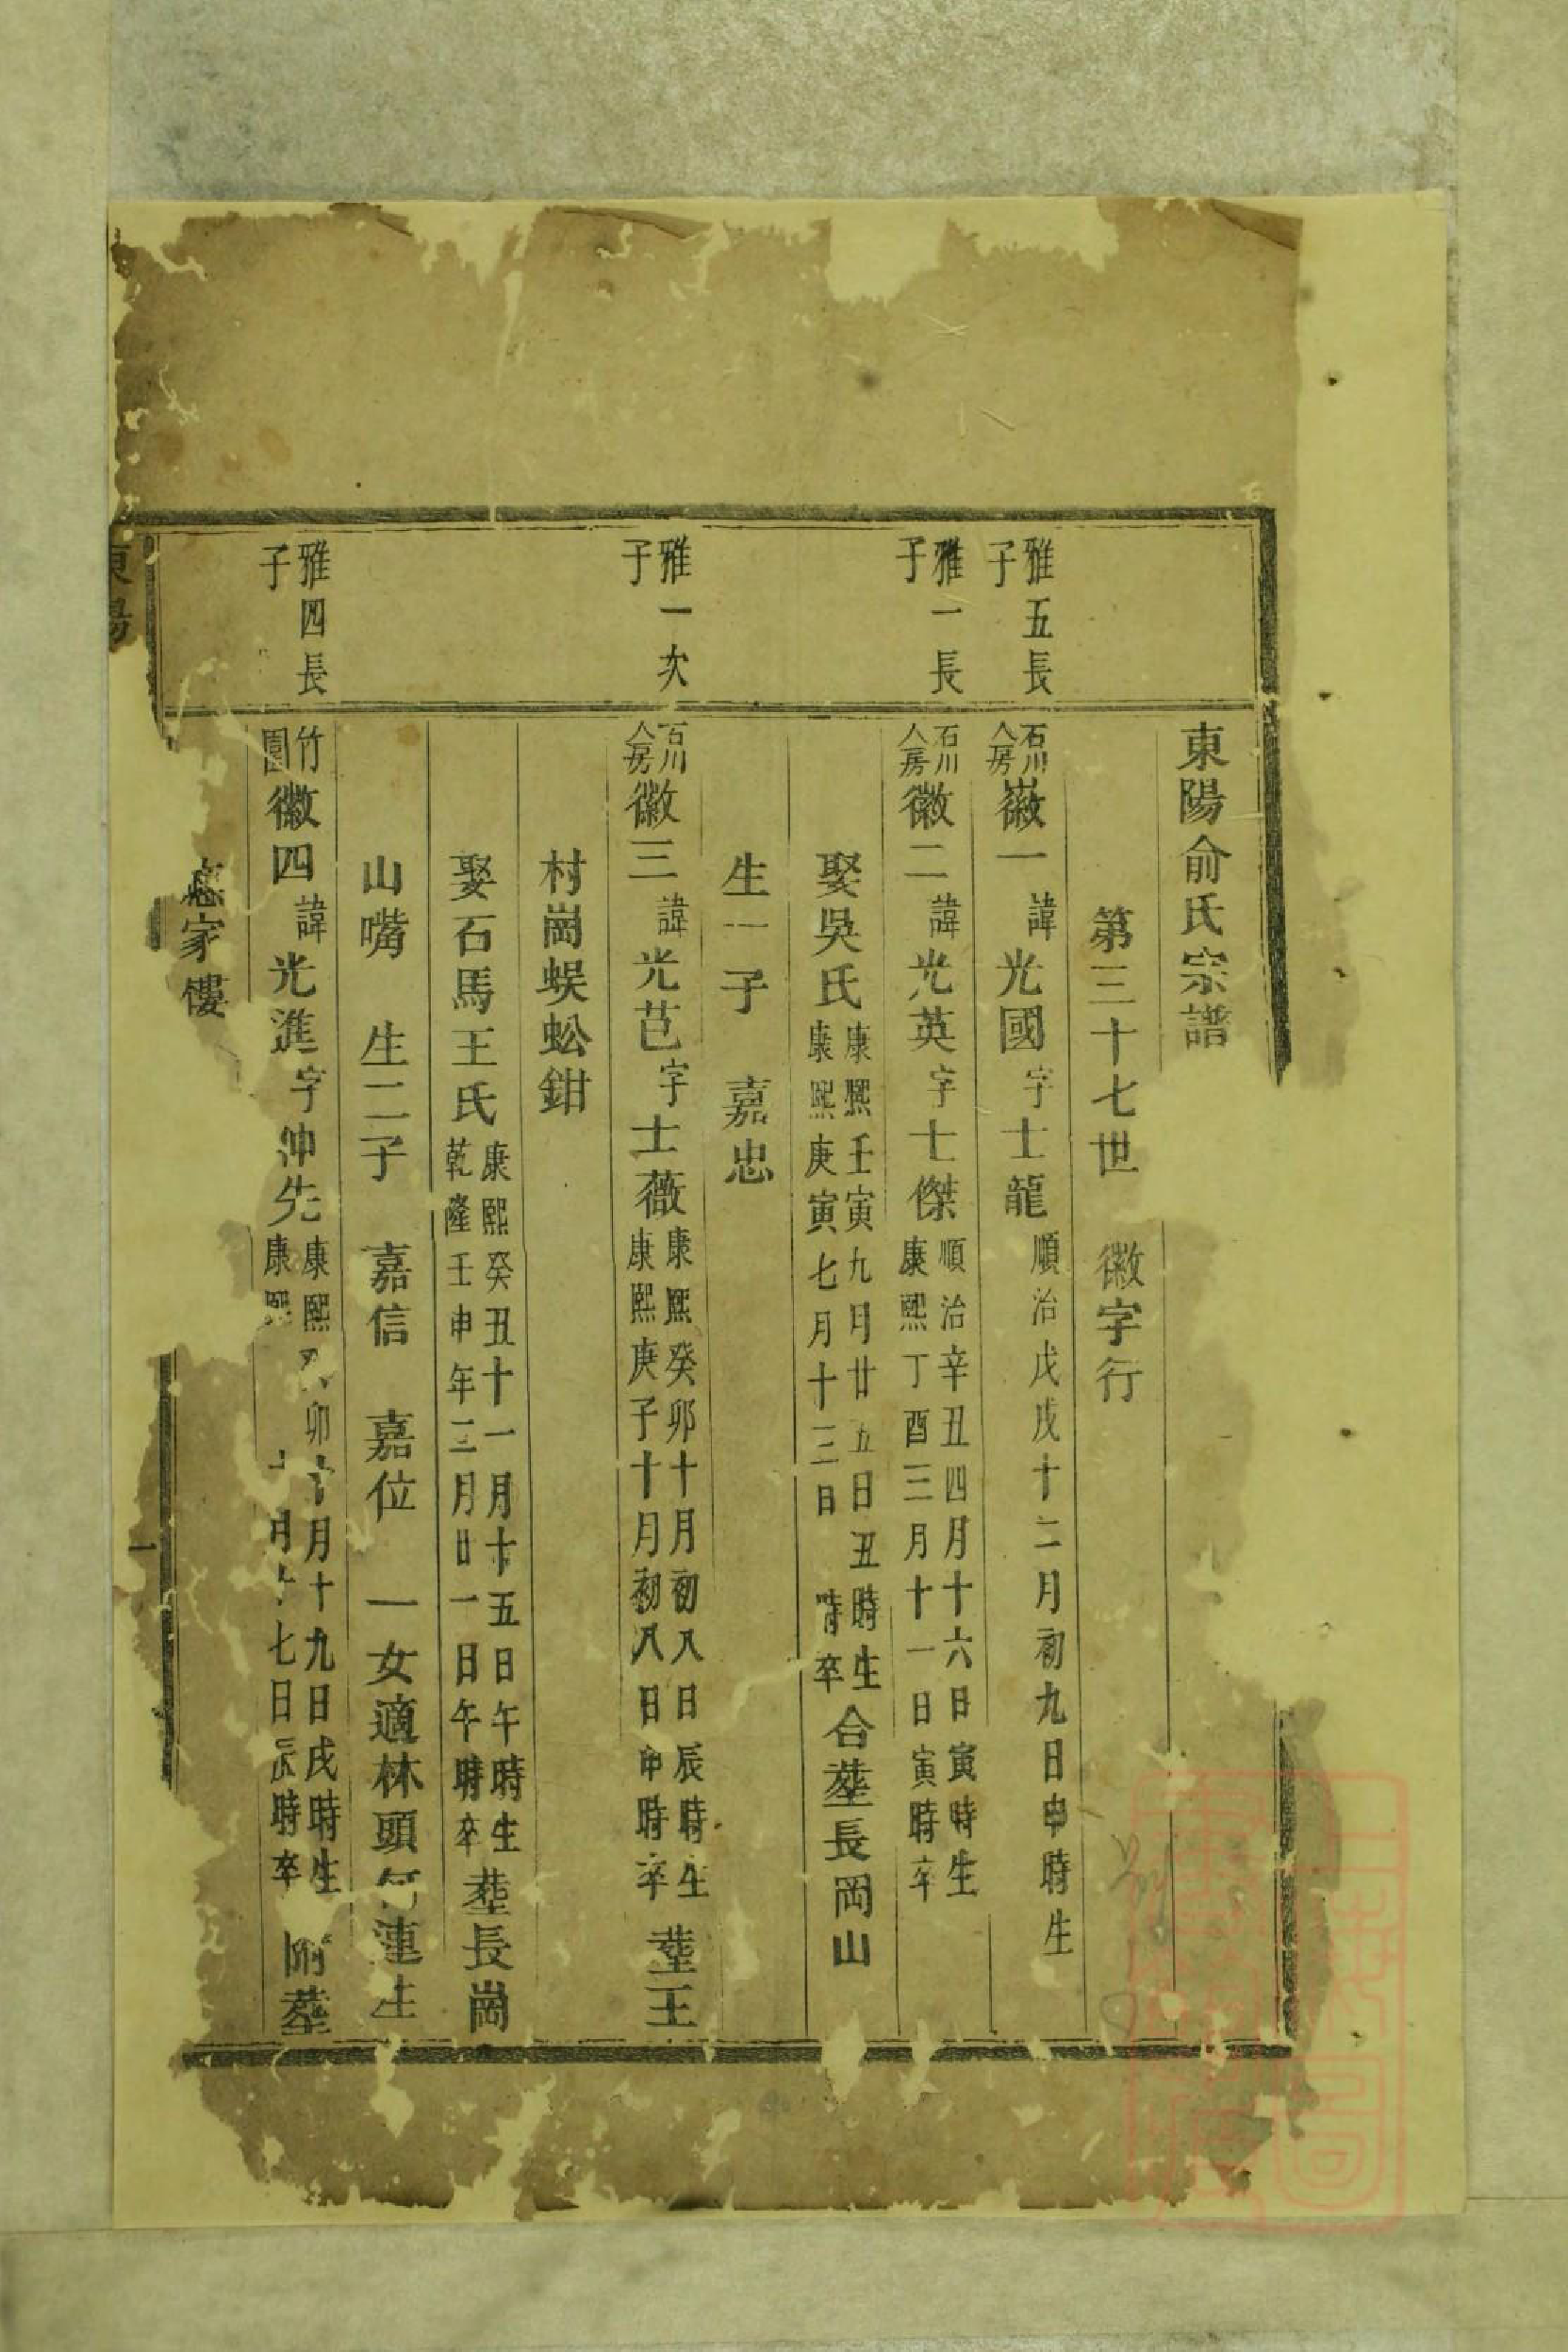 東陽俞氏宗譜
第三十七世 徽字行
雅五長
子
石川
人房
徽一 諱光國字士龍
順治戊戌十二月初九日申時生
雅一長
子
石川
人房
徽二 諱光英字士傑
順治辛丑四月十六日寅時生
康熙丁酉三月十一日寅時卒
娶吳氏
康熙壬寅九月廿五日丑時生
康熙庚寅七月十三日 時卒
合塟長岡山
生一子 嘉忠
雅一次
子
石川
人房
徽三 諱光芑字士薇
康熙癸卯十月初八日辰時生
康熙庚子十月初八日申時卒
塟王
村崗蜈蚣鉗
娶石馬王氏
康熙癸丑十一月十五日午時生
乾隆壬申年三月廿一日午時卒
塟長崗
山嘴 生二子 嘉信 嘉位 一女適林頭何連生
雅四長
子
竹
園
徽四 諱光進字沖先
康熙 卯 月十九日戌時生
康熙 月十七日辰時卒
附塟
家塿
東陽
一